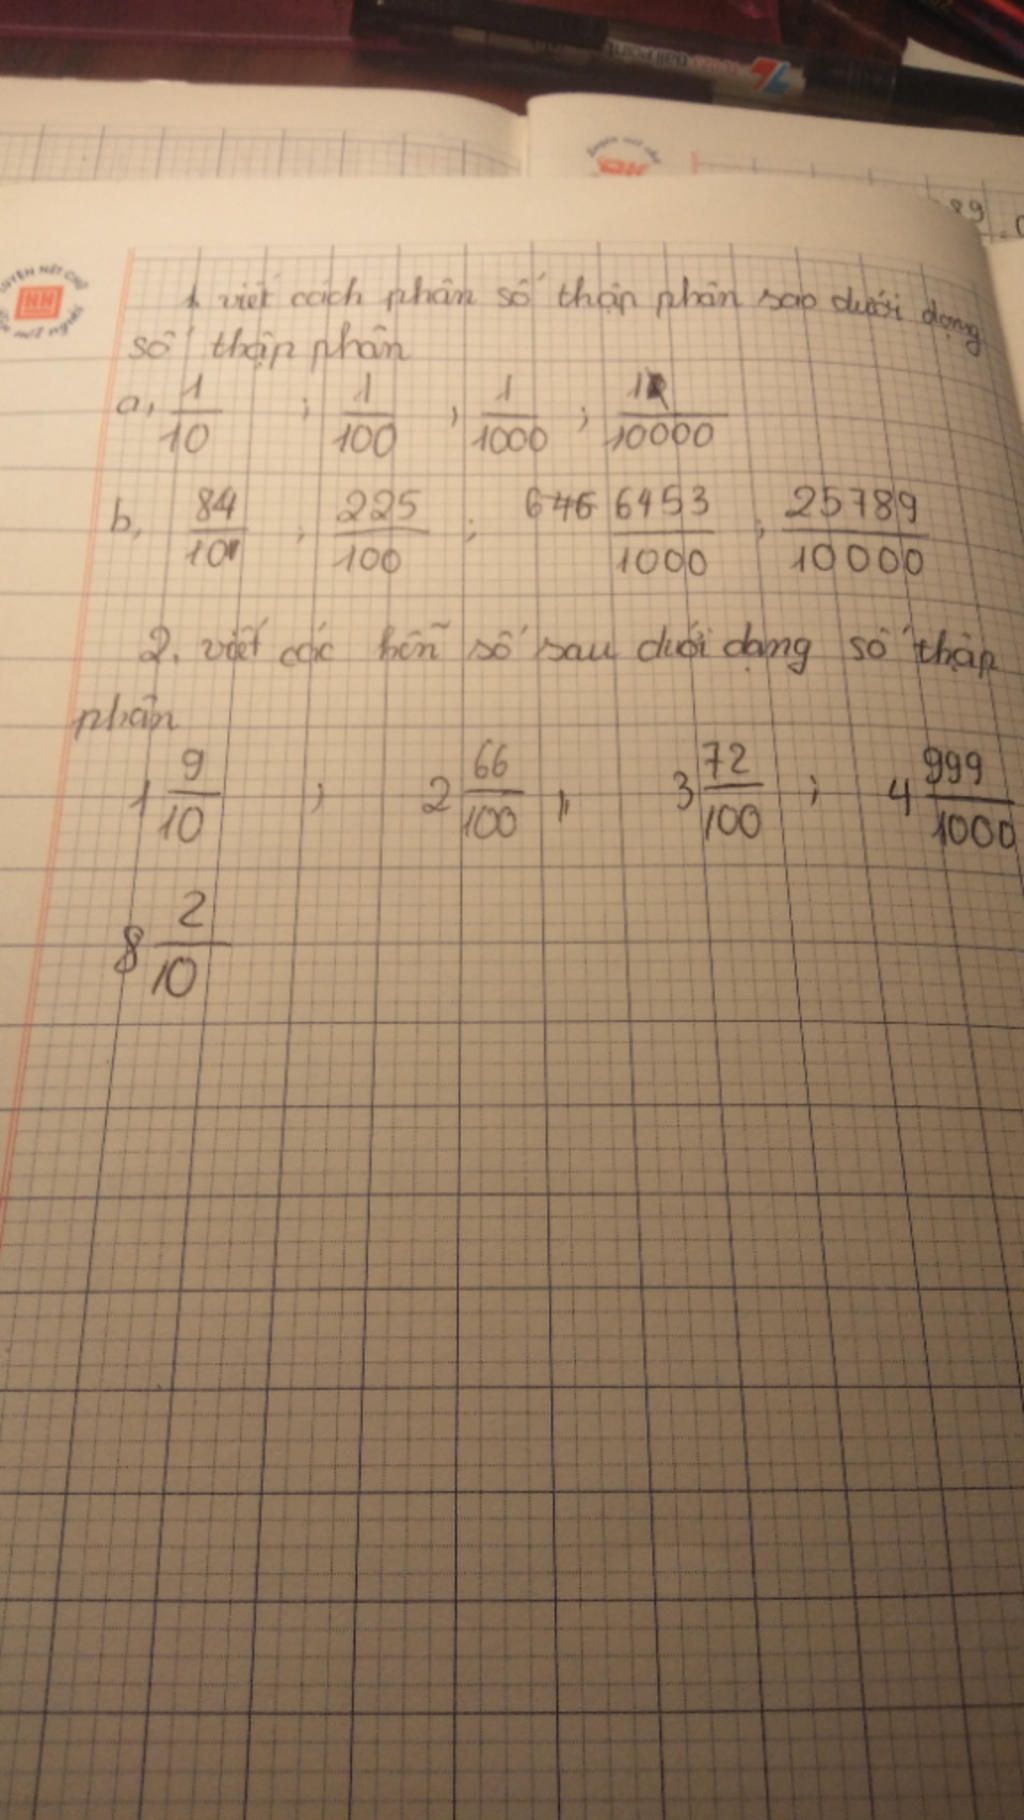 89
LUYỆN NÉT CHỮ
NN
1 viết cách phân số thập phân sao dưới dạng
số thập phân
a, 1/10 ; 1/100 , 1/1000 ; 1/10000
b, 84/10 , 225/100 ; 646 6453/1000 , 25789/10000
2. viết các hỗn số sau dưới dạng số thập
phân
1 9/10 ; 2 66/100 , 3 72/100 ; 4 999/1000
8 2/10